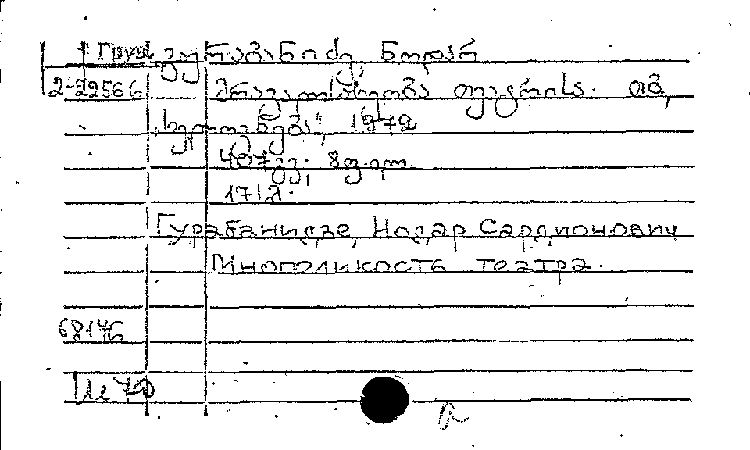 Груз. გურაბანიძე, ნოდარ
2-22566 მრავალსახეობა თეატრისა. თბ.,
„ხელოვნება“, 1972
407გვ; 8ფ.ილ.
17/2.
Гурабанидзе, Нодар Сардионович
Многоликость театра.